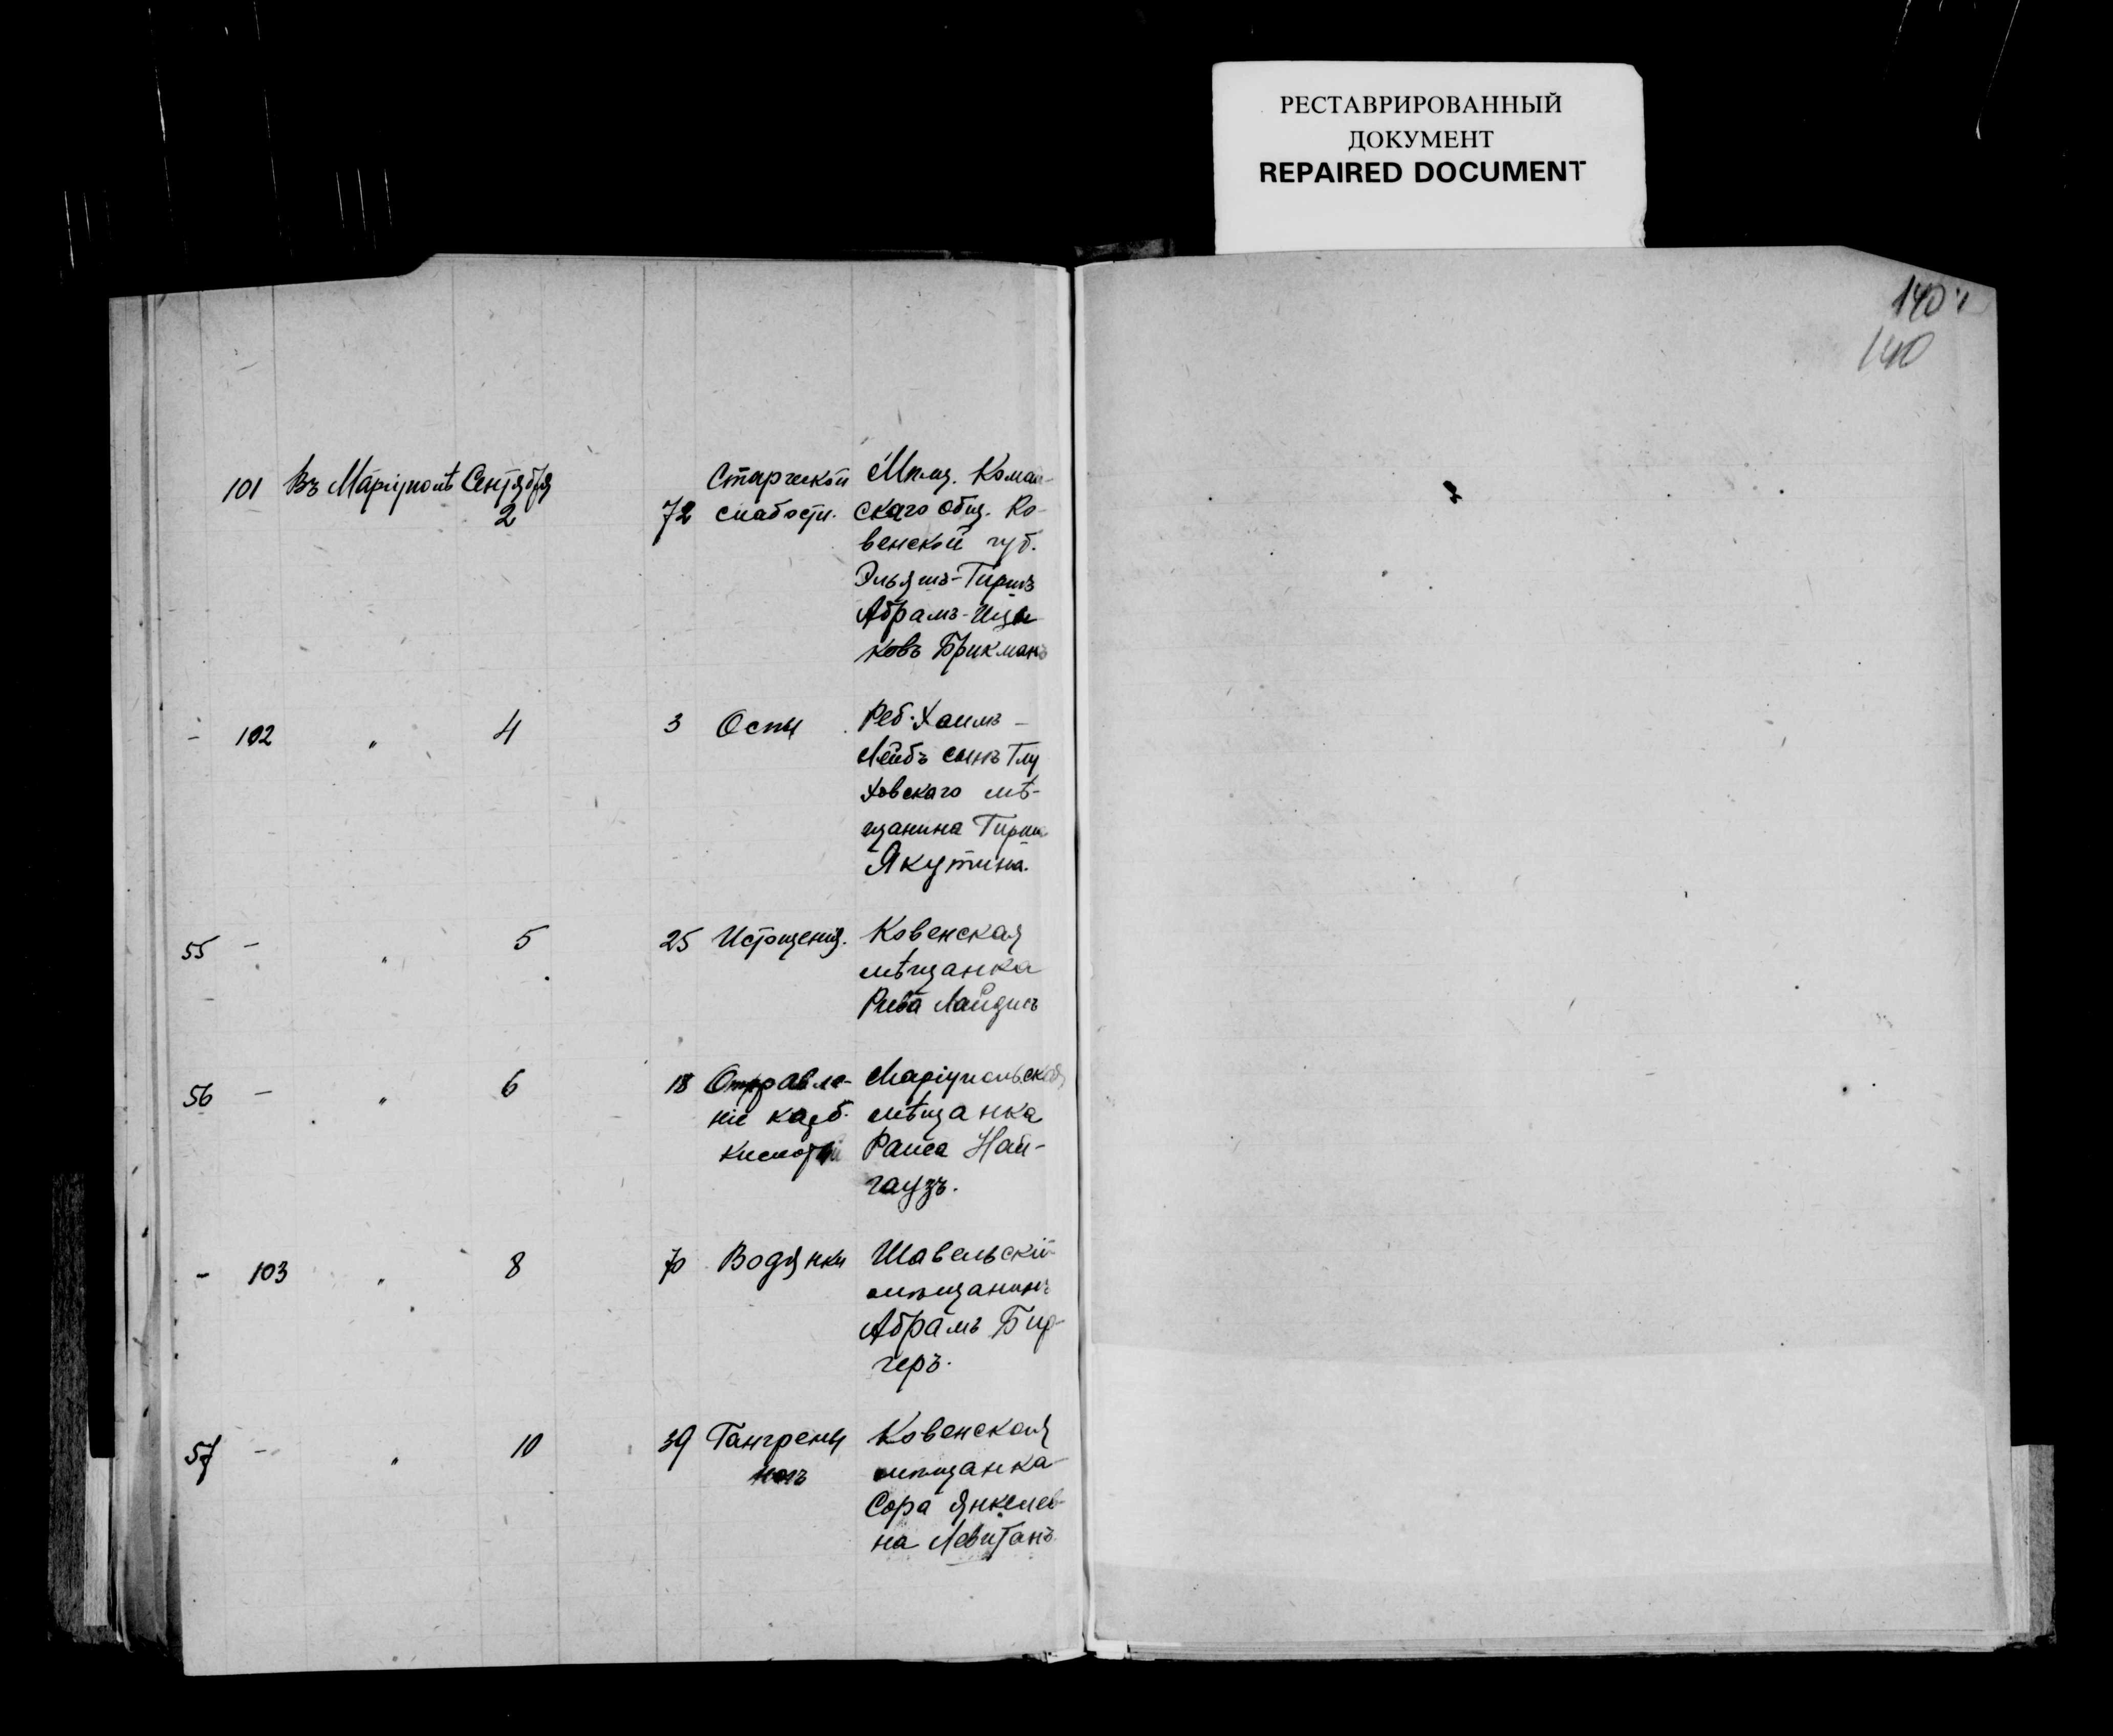 РЕСТАВРИРОВАННЫЙ
ДОКУМЕНТ
REPAIRED DOCUMENT
140
140
101 Въ Маріуполѣ Сентября 2 72 Старческой слабости.
Мѣщ. Комай-
скаго общ. Ко-
венской губ.
Эльяшъ-Гиршъ
Абрамъ-Ицы-
ковъ Брикманъ
- 102 " 4 3 Оспы
Реб. Хаимъ-
Лейбъ сынъ Глу
ховскаго мѣ-
щанина Гирша
Якутина.
55 - " 5 25 Истощенія.
Ковенская
мѣщанка
Рива Лайдисъ
56 - " 6 18 Отравле-
ніе карб.
кислотой
Маріупольская
мѣщанка
Раиса Най-
гаузъ.
- 103 " 8 70 Водянки
Шавельскій
мѣщанинъ
Абрамъ Бир-
геръ.
57 - " 10 39 Гангрены
ногъ
Ковенская
мѣщанка
Сора Янкелев-
на Левитанъ.